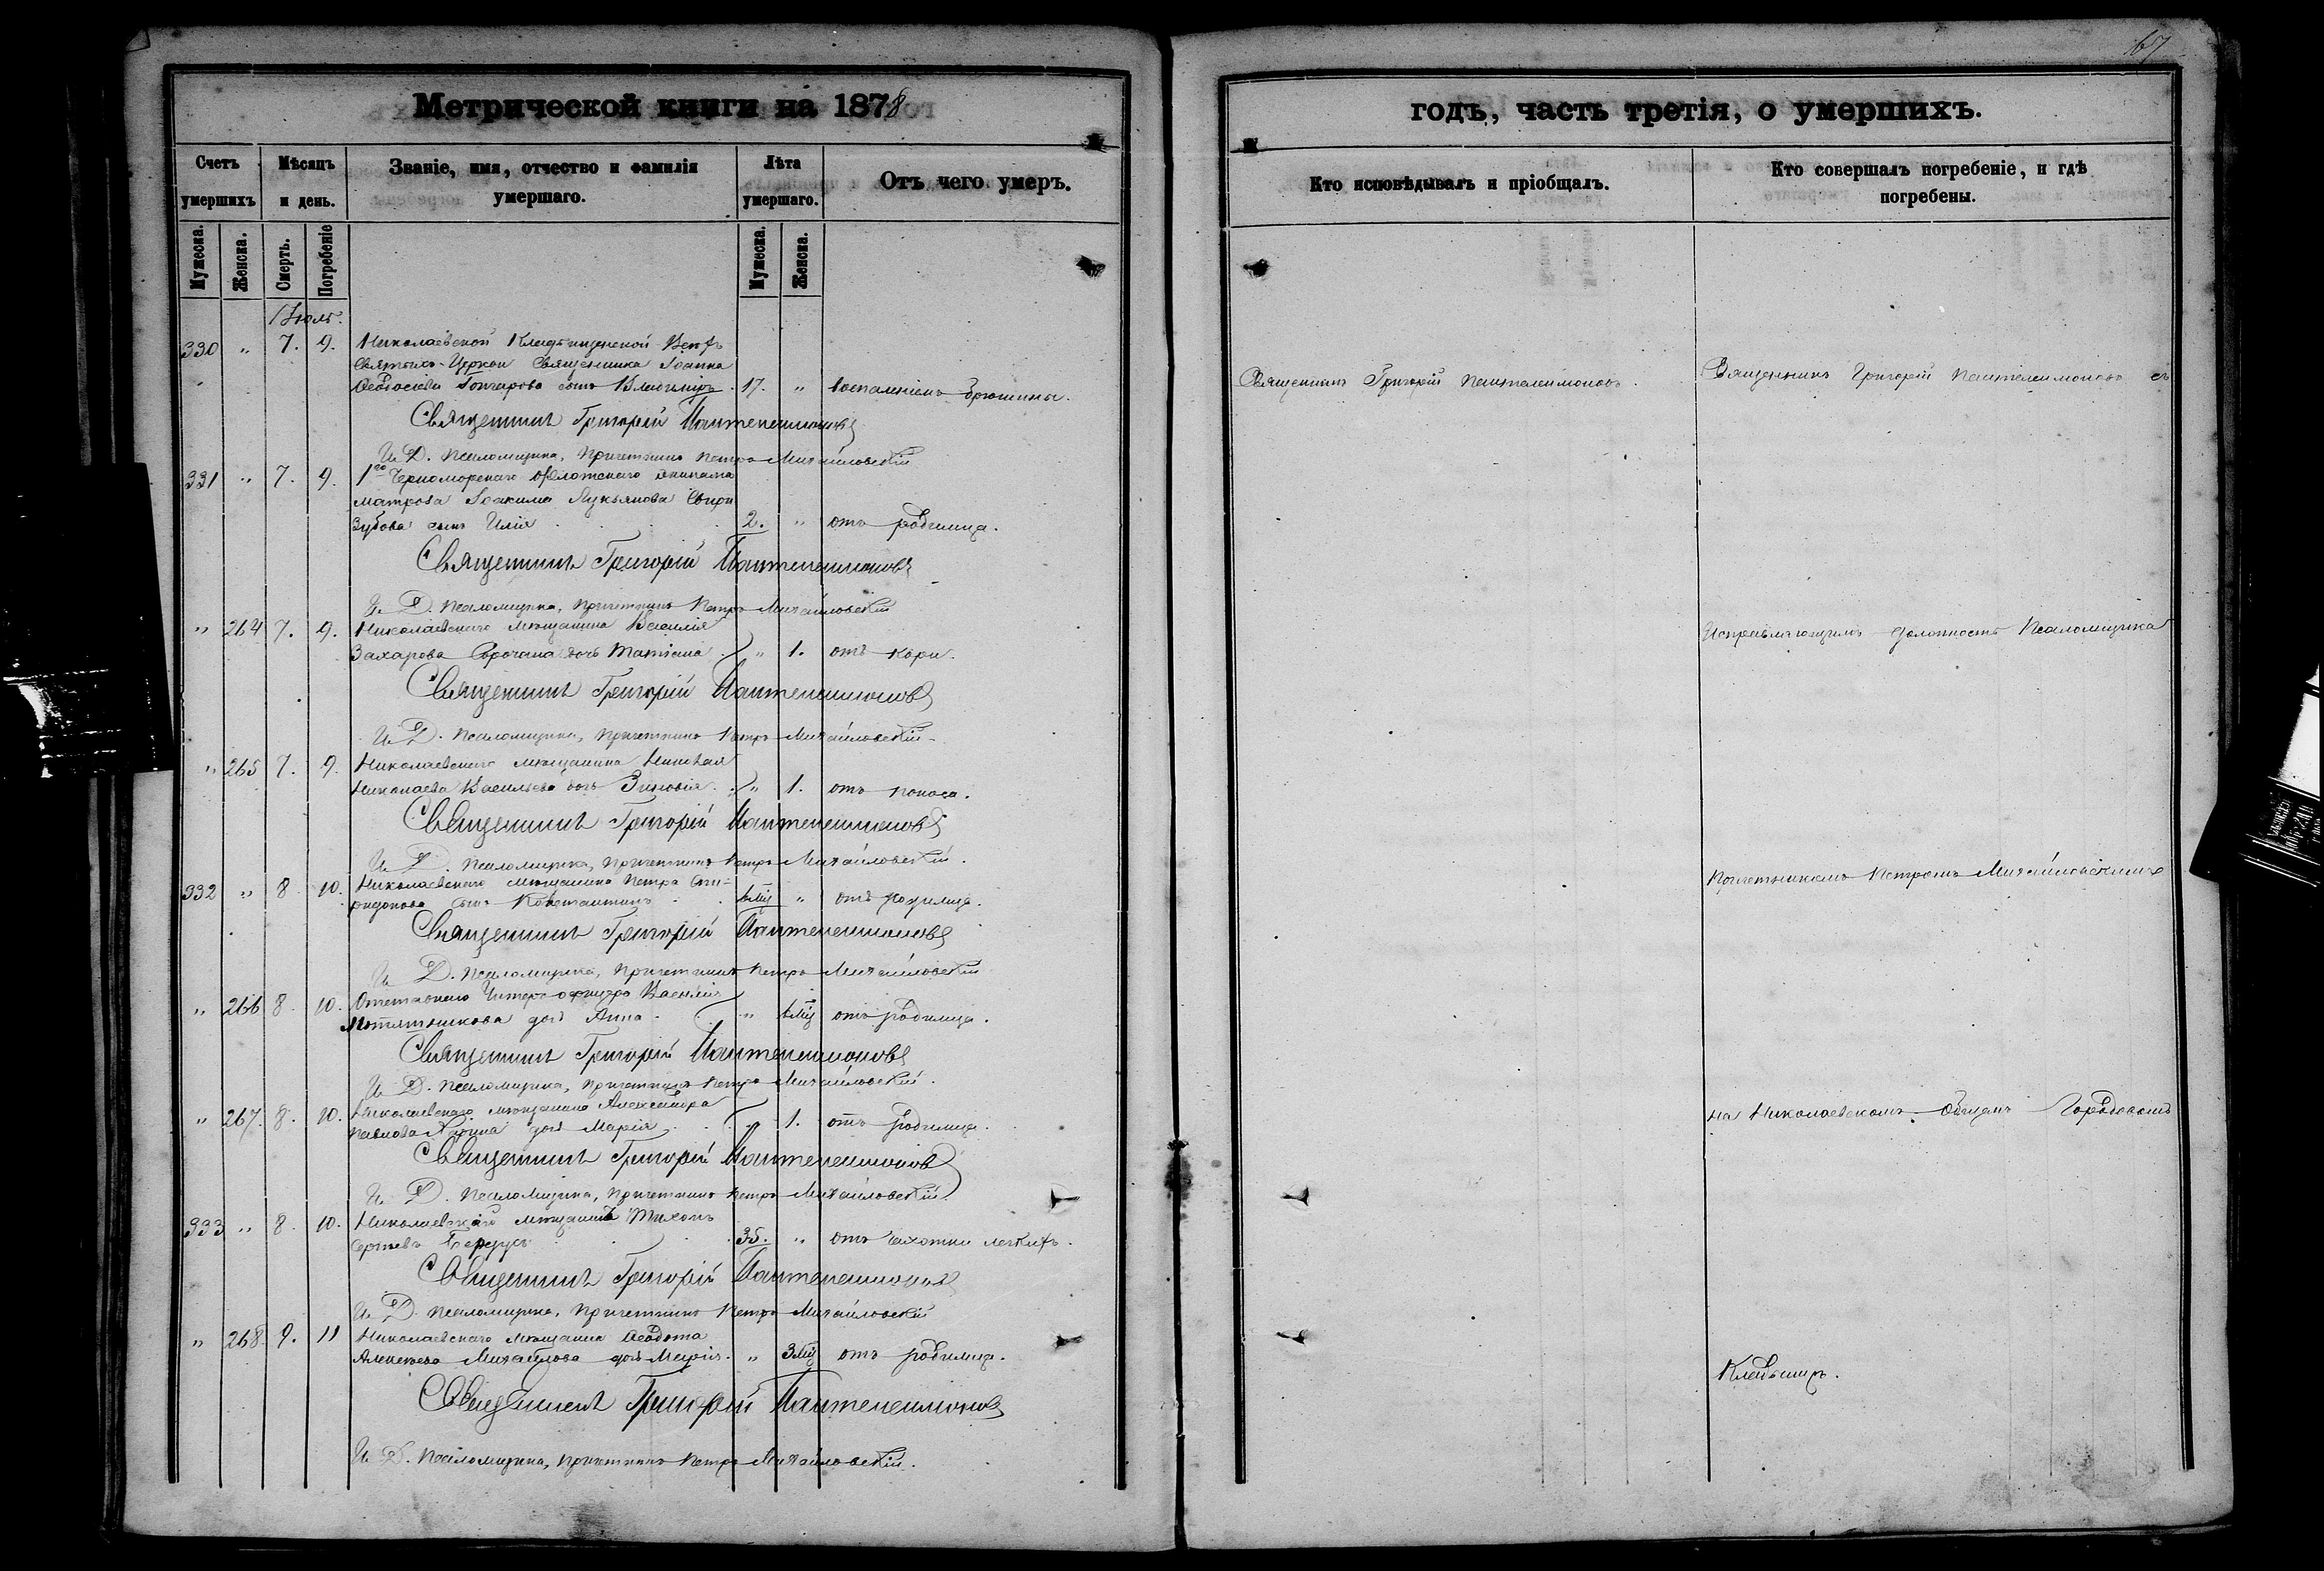 67
Метрической книги на 1878
годъ, часть третія, о умершихъ.
Счетъ умершихъ
Мѣсяцъ и день.
Званіе, имя, отчество и фамилія умершаго.
Лѣта умершаго.
Отъ чего умеръ.
Кто исповѣдывалъ и пріобщалъ.
Кто совершалъ погребеніе, и гдѣ погребены.
Мужеска.
Женска.
Смерть.
Погребеніе
Мужеска.
Женска.
Іюль.
330 " 7. 9. Николаевской Кладбищенской Всѣхъ
Святыхъ Церкви Священника Іоанна
Ѳеодосіева Гончарова сынъ Владиміръ. 17. " воспаленіемъ брюшины.
Священникъ Григорій Пантелеимоновъ
И. Д. Псаломщика, Причетникъ Петръ Михайловскій
331 " 7. 9. 1го Черноморскаго Флотскаго экипажа
матроса Іоакима Лукьянова
Зубова сынъ Илія 2. " отъ родимца.
Священникъ Григорій Пантелеимоновъ
И. Д. Псаломщика, Причетникъ Петръ Михайловскій
" 264 7. 9. Николаевскаго мѣщанина Василія
Захарова Сорочана дочь Татіана " 1. отъ кори.
Священникъ Григорій Пантелеимоновъ
И. Д. Псаломщика, Причетникъ Петръ Михайловскій
" 265 7. 9. Николаевскаго мѣщанина Николая
Николаева Васильева дочь Зиновія. " 1. отъ поноса.
Священникъ Григорій Пантелеимоновъ
И. Д. Псаломщика, Причетникъ Петръ Михайловскій.
332 " 8 10. Николаевскаго мѣщанина Петра Спи-
ридонова сынъ Константинъ 6мц " отъ родимца.
Священникъ Григорій Пантелеимоновъ
И. Д. Псаломщика, Причетникъ Петръ Михайловскій
" 266 8. 10. Отставнаго Унтеръ-офицера Василія
дочь Анна " 6мц отъ родимца.
Священникъ Григорій Пантелеимоновъ
И. Д. Псаломщика, Причетникъ Петръ Михайловскій.
" 267. 8. 10. Николаевскаго мѣщанина Александра
Павлова дочь Марія " 1. отъ родимца.
Священникъ Григорій Пантелеимоновъ
И. Д. Псаломщика, Причетникъ Петръ Михайловскій.
333 " 8. 10. Николаевскаго мѣщанинъ Тихонъ
Сергѣевъ 35. " отъ чахотки легкихъ.
Священникъ Григорій Пантелеимоновъ
И. Д. Псаломщика, Причетникъ Петръ Михайловскій
" 268. 9. 11 Николаевскаго мѣщанина Ѳеодота
Алексѣева Михайлова дочь Марія. " 3мц отъ родимца.
Священникъ Григорій Пантелеимоновъ
И. Д. Псаломщика, Причетникъ Петръ Михайловскій.
Священникъ Григорій Пантелеимоновъ.
Священникъ Григорій Пантелеимоновъ съ
Исправляющимъ должность Псаломщика
Причетникомъ Петромъ Михайловскимъ
на Николаевскомъ Общемъ Городскомъ
Кладбищѣ.